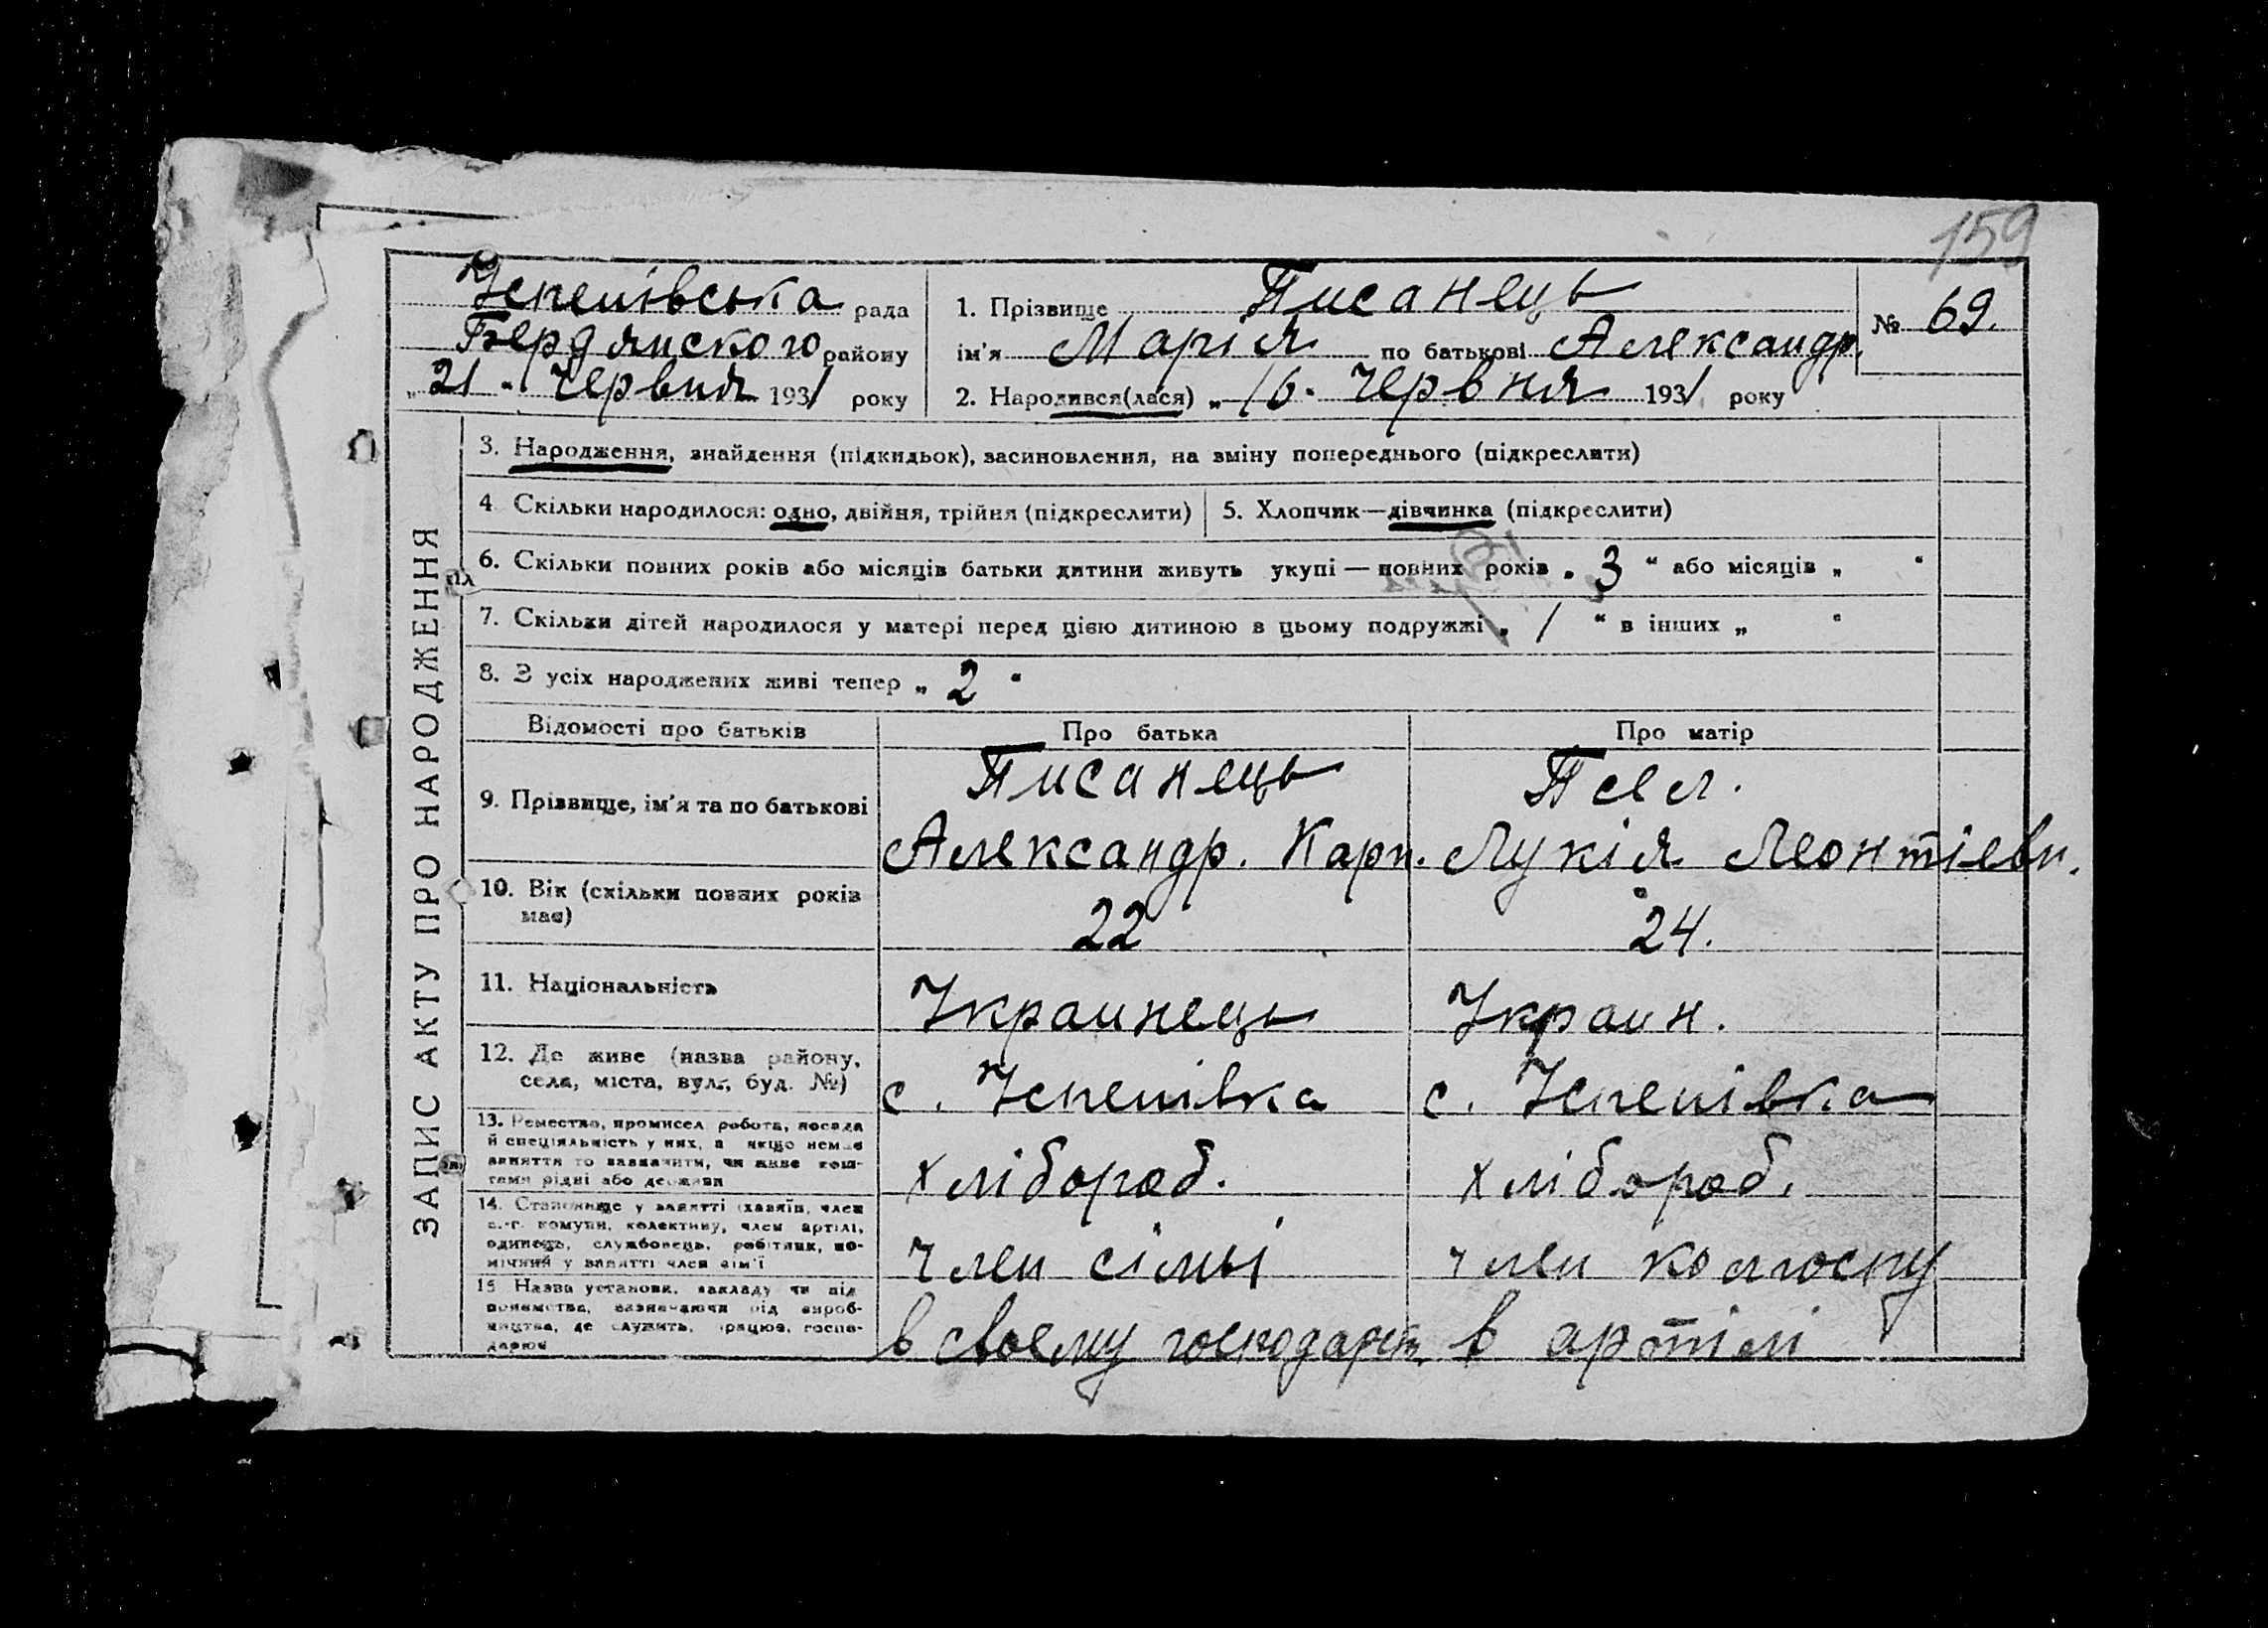 159
Успенівська рада
Бердянського району
„21" Червня 1931 року
1. Прізвище Писанець
ім'я Марія по батькові Александр.
№ 69.
2. Народився(лася) „16" Червня 1931 року
ЗАПИС АКТУ ПРО НАРОДЖЕННЯ
3. Народження, знайдення (підкидьок), засиновлення, на зміну попереднього (підкреслити)
4 Скільки народилося: одно, двійня, трійня (підкреслити)
5. Хлопчик—дівчинка (підкреслити)
6. Скільки повних років або місяців батьки дитини живуть укупі — повних років „3" або місяців „ "
7. Скільки дітей народилося у матері перед цією дитиною в цьому подружжі „1" в інших „ "
8. З усіх народжених живі тепер „2"
Відомості про батьків Про батька Про матір
9. Прізвище, ім'я та по батькові
Писанець
Александр. Карп.
Лукія Леонтієвн.
10. Вік (скільки повних років
має)
22
24.
11. Національність
Украинець
Украин.
12. Де живе (назва району,
села, міста, вул., буд. №)
с. Успенівка
с. Успенівка
13. Ремество, промисел робота, посада
й спеціяльність у них, а якщо немає
заняття то зазначити, чи живе кош-
тами рідні або держави
хлібороб.
хлібороб.
14. Становище у занятті (хазяїн, член
с.-г. комуни, колективу, член артілі,
одинець, службовець, робітник, по-
мічний у занятті член сім'ї
член сімьі
член колгоспу
15 Назва установи, закладу чи під
приємства, зазначаючи рід вироб-
ництва, де служить, працює, госпо-
дарює
в своему господарст.
в артілі